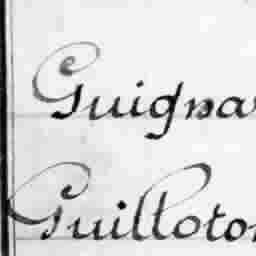 Guignar
Guilloton